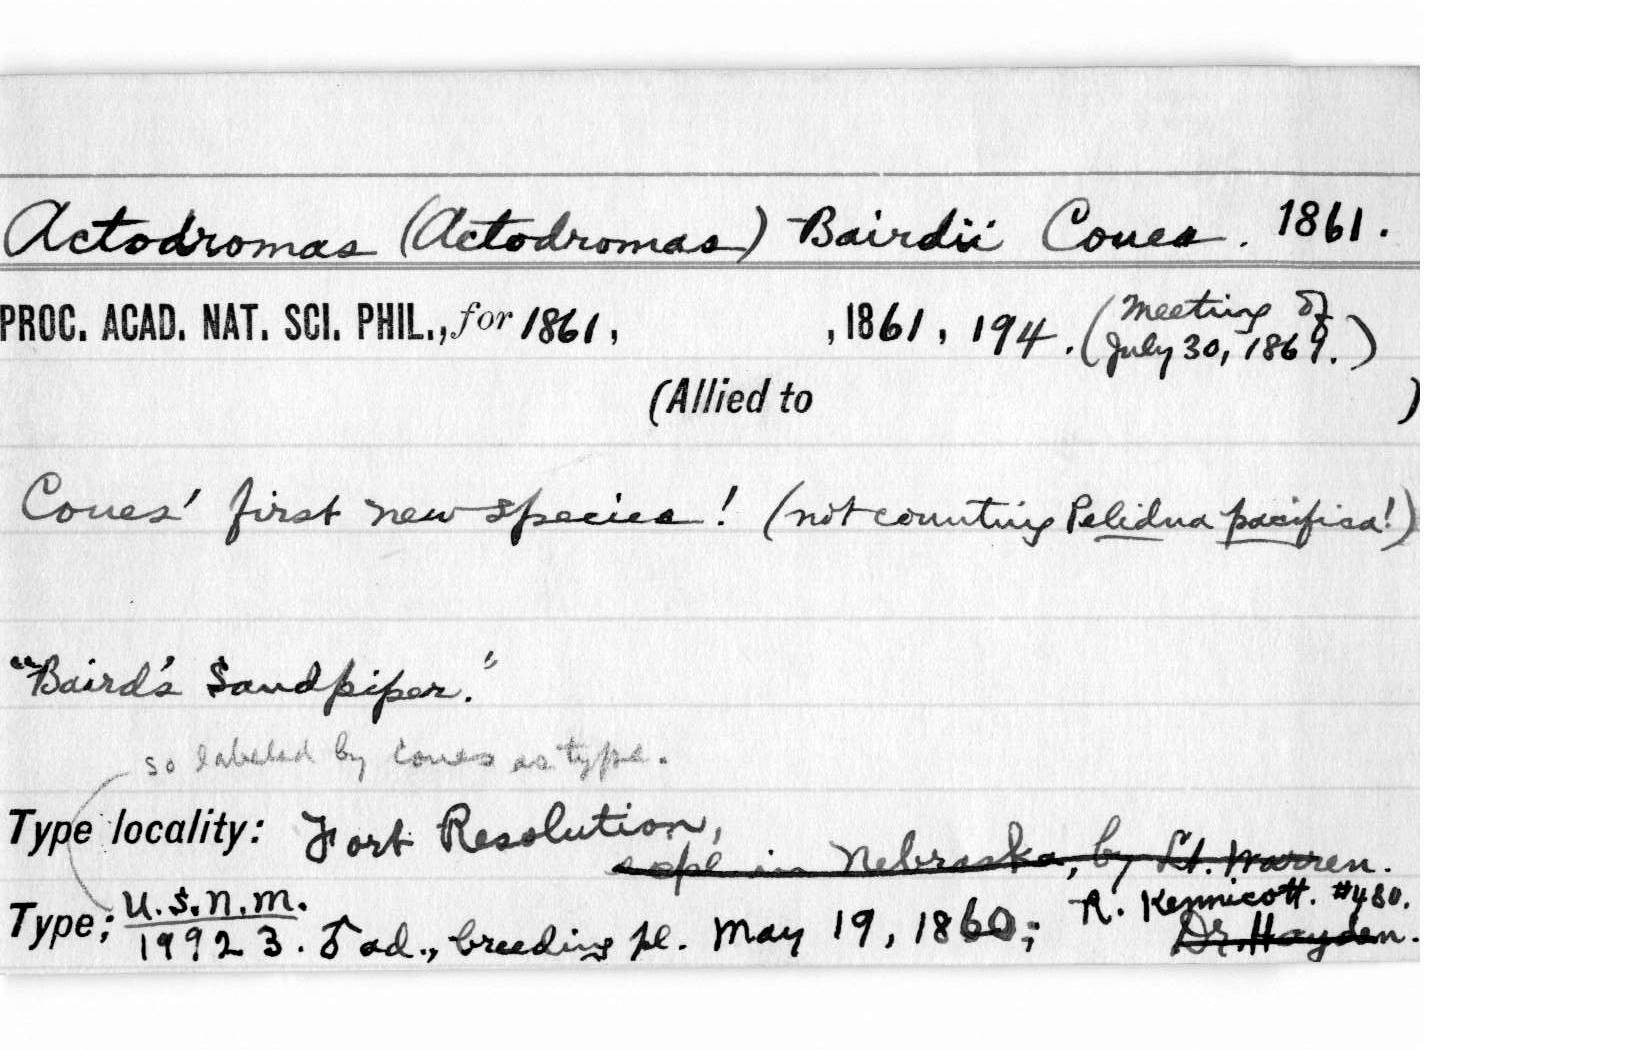 Actodromas (Actodromas) Bairdii Coues. 1861.
PROC. ACAD. NAT. SCI. PHIL., for 1861, , 1861, 194. (Meeting of
July 30, 1861.)
(Allied to )
Coues' first new species! (not counting Pelidna pacifica!)
"Baird's Sandpiper."
so labeled by Coues as type.
Type locality: Fort Resolution,
in Nebraska, by Lt. Warren.
Type; U.S.N.M. R. Kennicott. #480.
19923. ad., breeding pl. May 19, 1860; Dr. Hayden.